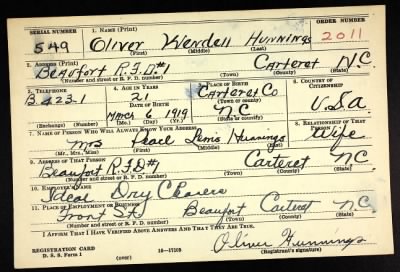 SERIAL NUMBER 1. NAME (Print) ORDER NUMBER
549 Oliver Wendell Hunnings 2011
(First) (Middle) (Last)
2. ADDRESS (Print)
Beaufort R.F.D.#1 Carteret N.C.
(Number and street or R. F. D. number) (Town) (County) (State)
3. TELEPHONE 4. AGE IN YEARS 5. PLACE OF BIRTH 6. COUNTRY OF CITIZENSHIP
B 423-1 21 Carteret Co
DATE OF BIRTH (Town or county)
March 6 1919 NC U.S.A
(Exchange) (Number) (Mo.) (Day) (Yr.) (State or country)
7. NAME OF PERSON WHO WILL ALWAYS KNOW YOUR ADDRESS 8. RELATIONSHIP OF THAT PERSON
Mrs Pearl Hunnings Wife
(Mr., Mrs., Miss) (First) (Middle) (Last)
9. ADDRESS OF THAT PERSON
Beaufort R.F.D.#1 Carteret NC.
(Number and street or R. F. D. number) (Town) (County) (State)
10. EMPLOYER'S NAME
Ideal Dry Cleaners
11. PLACE OF EMPLOYMENT OR BUSINESS
Front St. Beaufort Carteret NC
(Number and street or R. F. D. number) (Town) (County) (State)
I AFFIRM THAT I HAVE VERIFIED ABOVE ANSWERS AND THAT THEY ARE TRUE.
REGISTRATION CARD
D. S. S. Form 1 (over) 16—17105
Oliver Hunnings
(Registrant's signature)